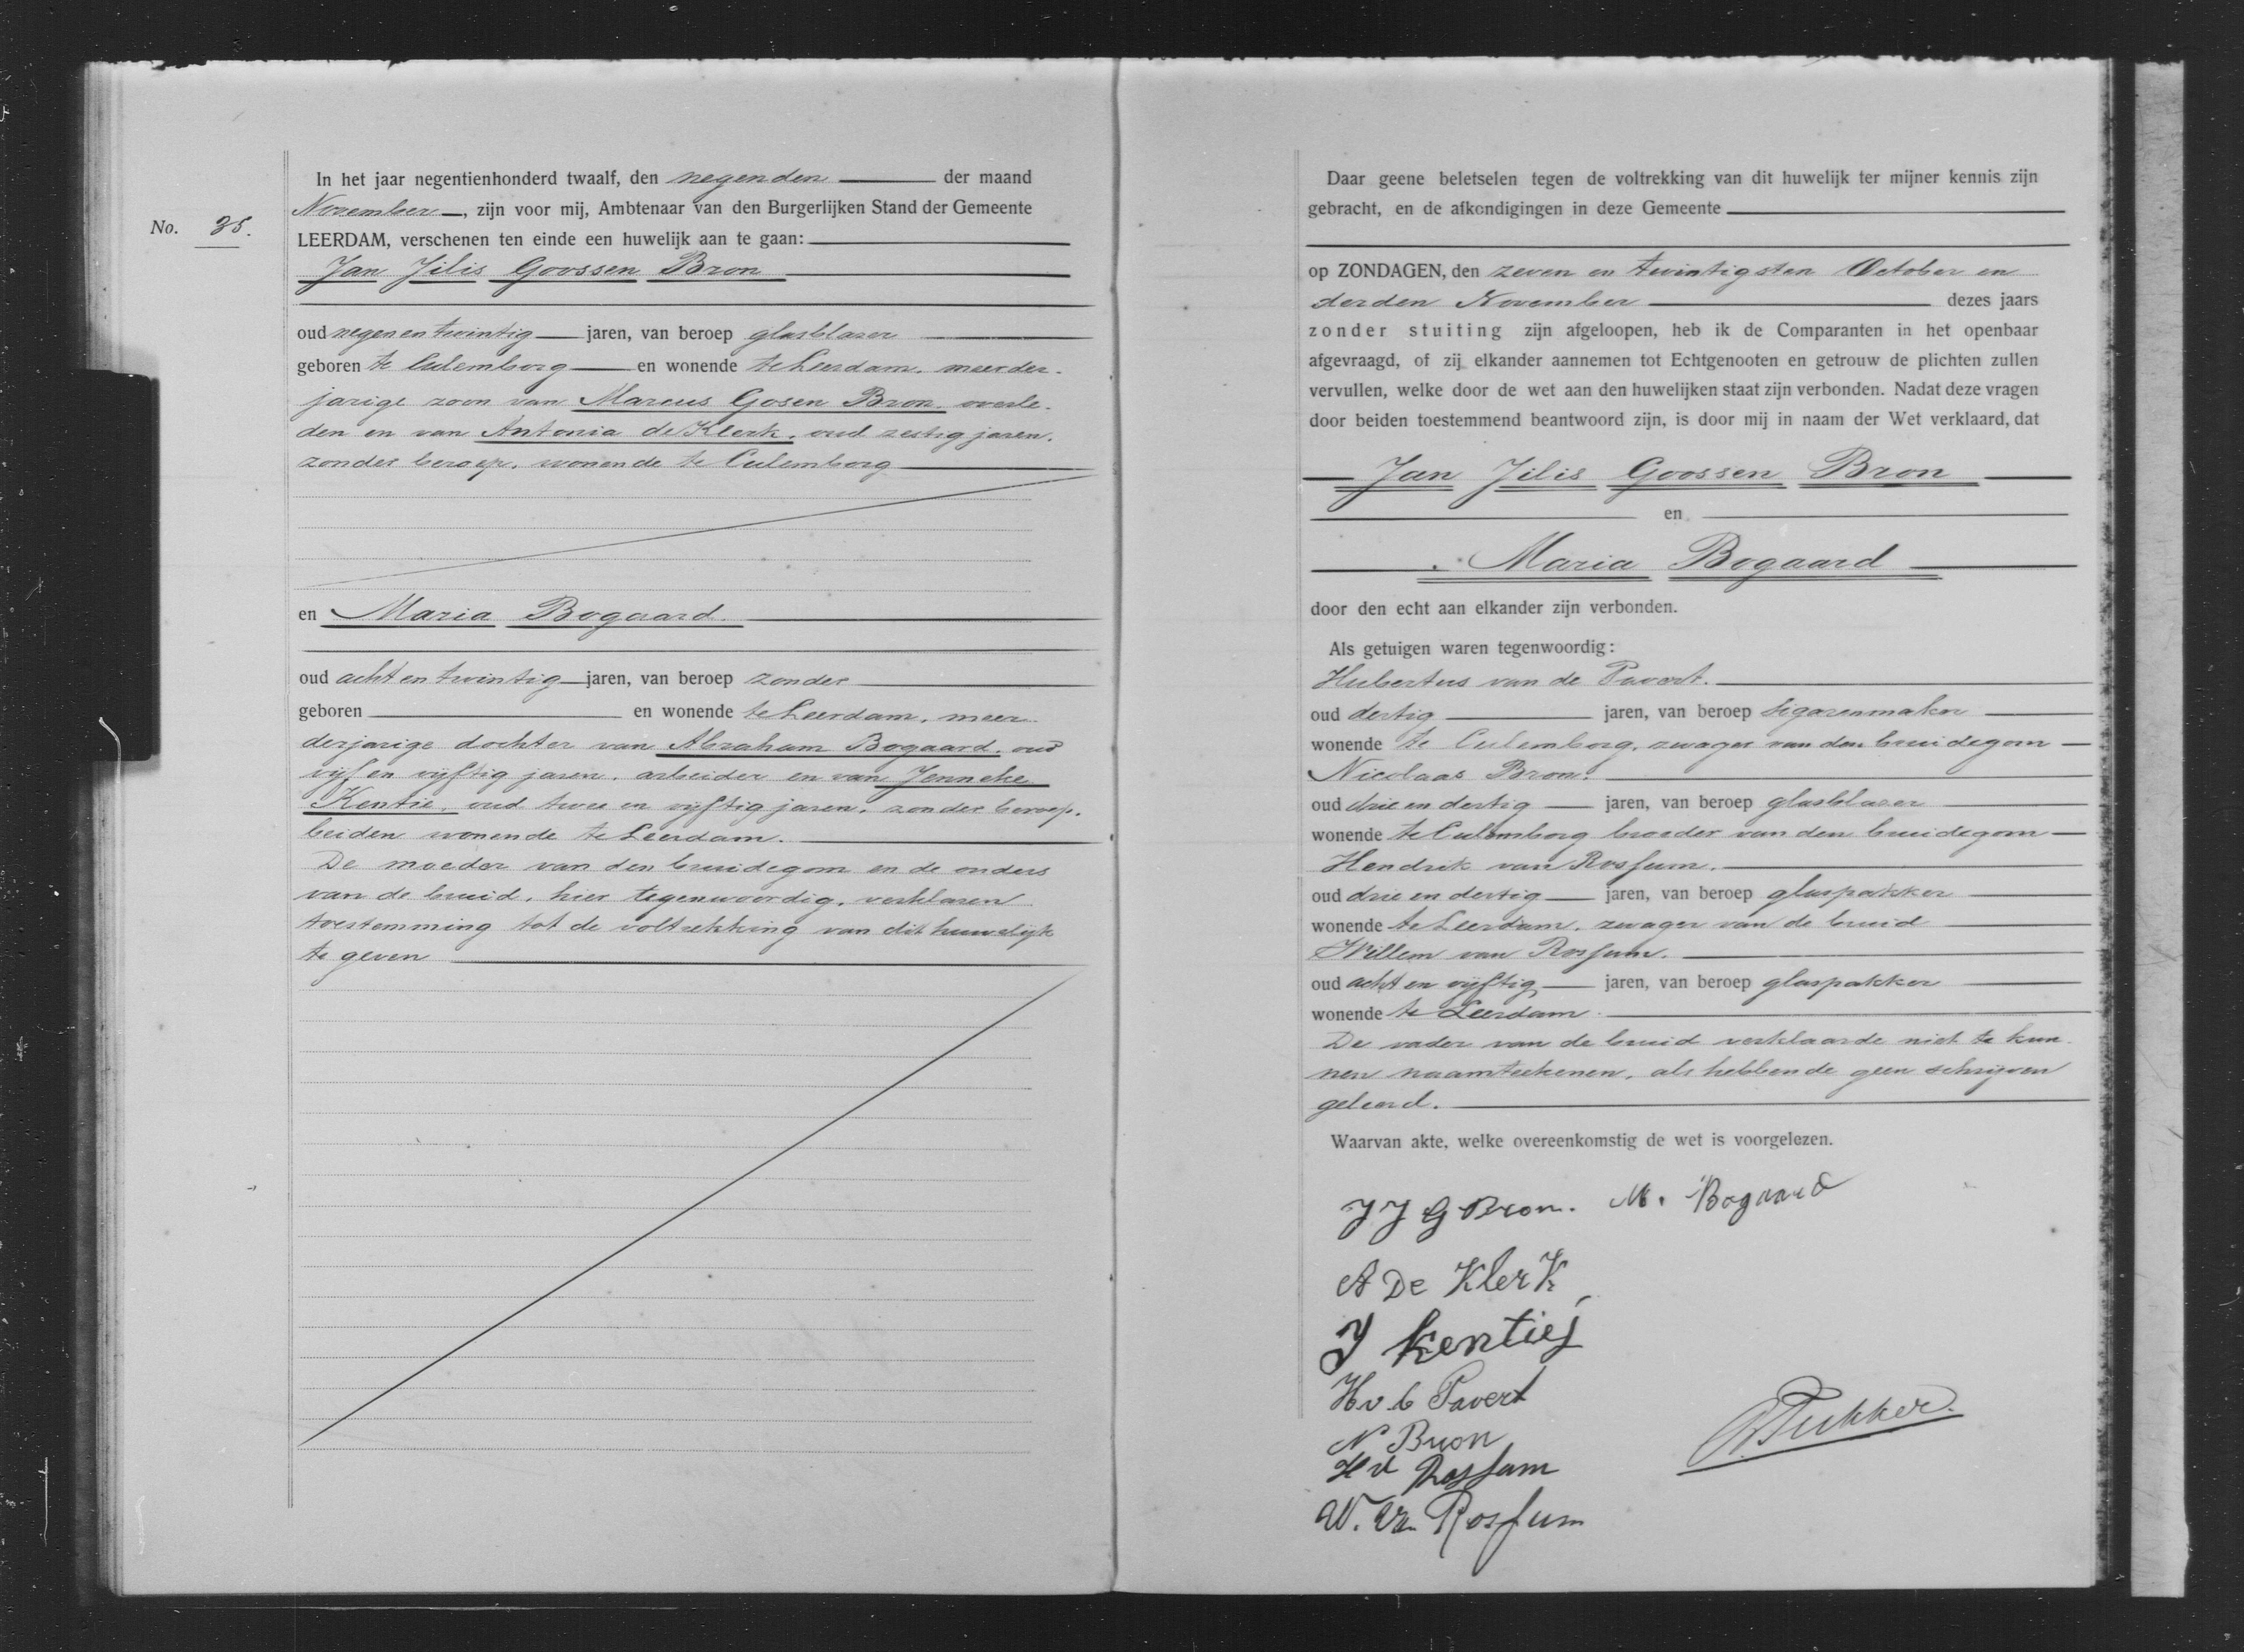 No. 38.
In het jaar negentienhonderd twaalf, den negenden der maand
November, zijn voor mij, Ambtenaar van den Burgerlijken Stand der Gemeente
LEERDAM, verschenen ten einde een huwelijk aan te gaan:
Jan Jilis Goossen Bron
oud negen en twintig jaren, van beroep glasblazer
geboren te Culemborg en wonende te Leerdam, meerder-
jarige zoon van Marcus Gosen Bron, overle-
den en van Antonia de Klerk, oud zestig jaren,
zonder beroep, wonende te Culemborg
en Maria Bogaard.
oud acht en twintig jaren, van beroep zonder
geboren en wonende te Leerdam, meer-
derjarige dochter van Abraham Bogaard, oud
vijf en vijftig jaren, arbeider en van Jenneke
Kentie, oud twee en vijftig jaren, zonder beroep,
beiden wonende te Leerdam.
De moeder van den bruidegom en de ouders
van de bruid, hier tegenwoordig, verklaren
toestemming tot de voltrekking van dit huwelijk
te geven
Daar geene beletselen tegen de voltrekking van dit huwelijk ter mijner kennis zijn
gebracht, en de afkondigingen in deze Gemeente
op ZONDAGEN, den zeven en twintigsten October en
derden November dezes jaars
zonder stuiting zijn afgeloopen, heb ik de Comparanten in het openbaar
afgevraagd, of zij elkander aannemen tot Echtgenooten en getrouw de plichten zullen
vervullen, welke door de wet aan den huwelijken staat zijn verbonden. Nadat deze vragen
door beiden toestemmend beantwoord zijn, is door mij in naam der Wet verklaard, dat
Jan Jilis Goossen Bron
en
Maria Bogaard
door den echt aan elkander zijn verbonden.
Als getuigen waren tegenwoordig:
Hubertus van de Pavert.
oud dertig jaren, van beroep sigarenmaker
wonende te Culemborg, zwager van den bruidegom
Nicolaas Bron.
oud drie en dertig jaren, van beroep glasblazer
wonende te Culemborg broeder van den bruidegom
Hendrik van Rossum.
oud drie en dertig jaren, van beroep glaspakker
wonende te Leerdam, zwager van de bruid
Willem van Rossum.
oud acht en vijftig jaren, van beroep glaspakker
wonende te Leerdam
De vader van de bruid verklaarde niet te kun-
nen naamteekenen, als hebbende geen schrijven
geleerd.
Waarvan akte, welke overeenkomstig de wet is voorgelezen.
J J G Bron. M. Bogaard
A De Klerk
J Kentiej
H v d Pavert
N Bron
H v Rossum
W. v. Rossum
Tukker.